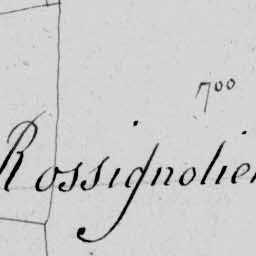 700
Rossignolier